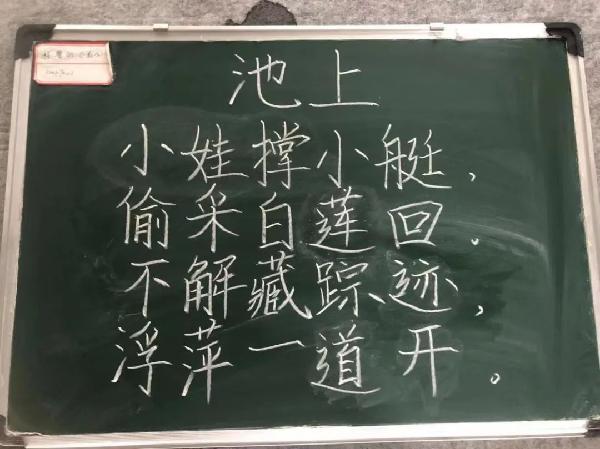 池上
小娃撑小艇,
偷采白莲回.
不解藏踪迹,
浮萍一道开。